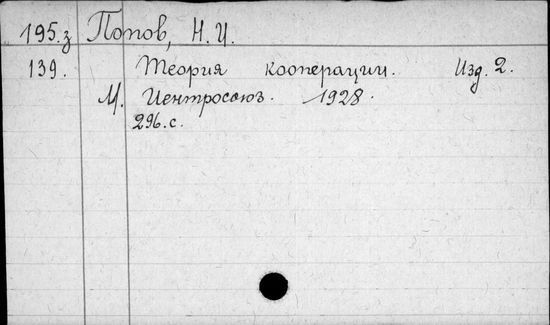 195.з Попов, Н.И.
139. Теория кооперации. Изд. 2.
М. Центросоюз. 1928.
296.с.